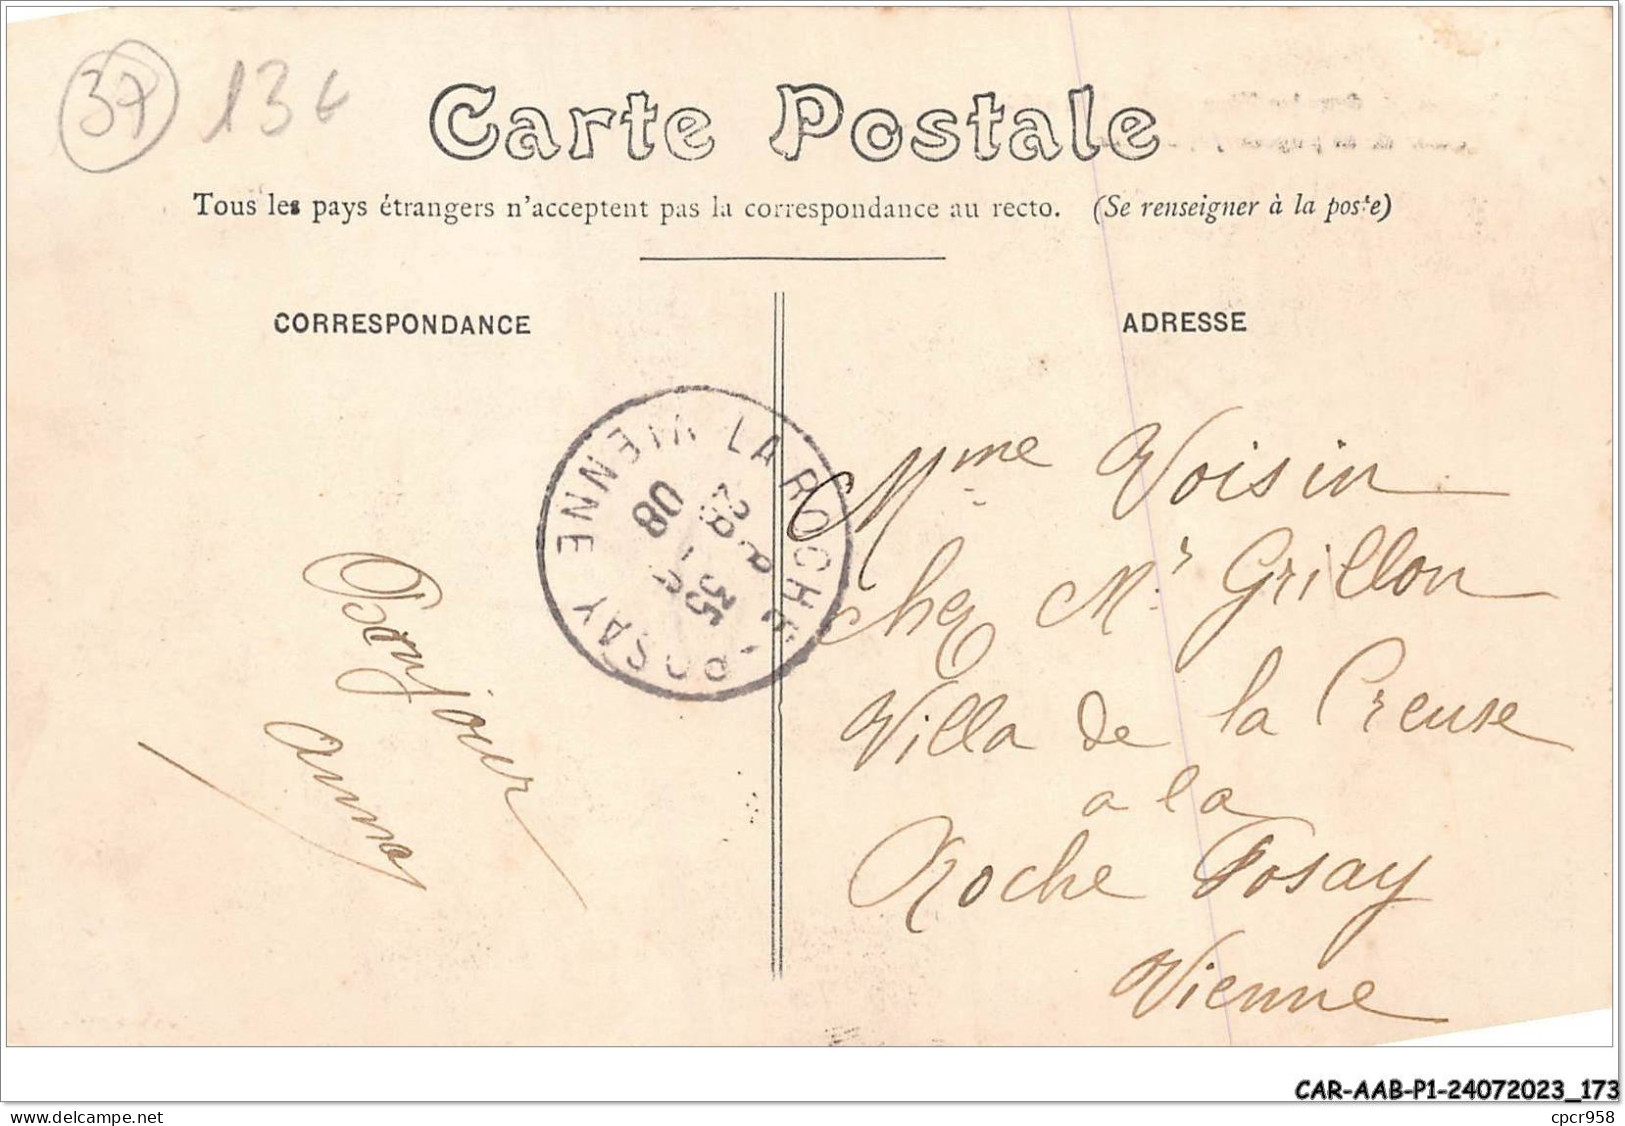 37 13€
Carte Postale
Tous les pays étrangers n'acceptent pas la correspondance au recto. (Se renseigner à la poste)
CORRESPONDANCE
ADRESSE
LA ROCHE-POSAY VIENNE
28 -8
35
08
Bonjour
Anna
Mme Voisin
chez Mr Grillon
Villa de la Creuse
a la
Roche Posay
Vienne
CAR-AAB-P1-24072023_173
www.delcampe.net
cpcr958